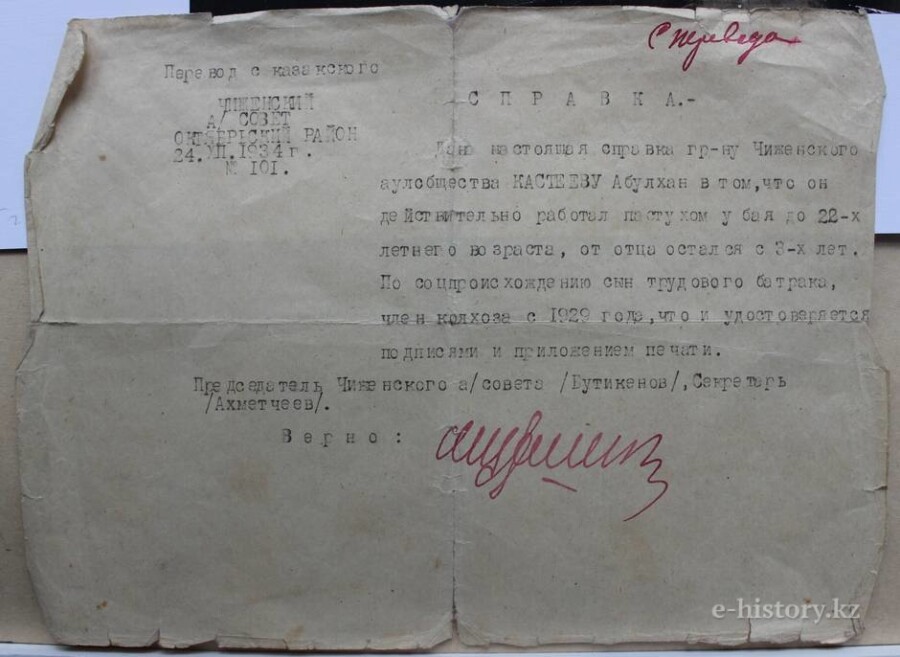 С перевода
Перевод с казакского
ЧИЖЕНСКИЙ
А/ СОВЕТ
ОКТЯБРЬСКИЙ РАЙОН
24.VII.1934 г.
№ 101.
С П Р А В К А.-
Дана настоящая справка гр-ну Чиженского
аулобщества КАСТЕЕВУ Абулхан в том,что он
действительно работал пастухом у бая до 22-х
летнего возраста, от отца остался с 3-х лет.
По соцпроисхождению сын трудового батрака,
член колхоза с 1929 года,что и удостоверяется
подписями и приложением печати.
Председатель Чиженского а/совета /Бутикенов/,Секретарь
/Ахметчеев/.
В е р н о :
e-history.kz